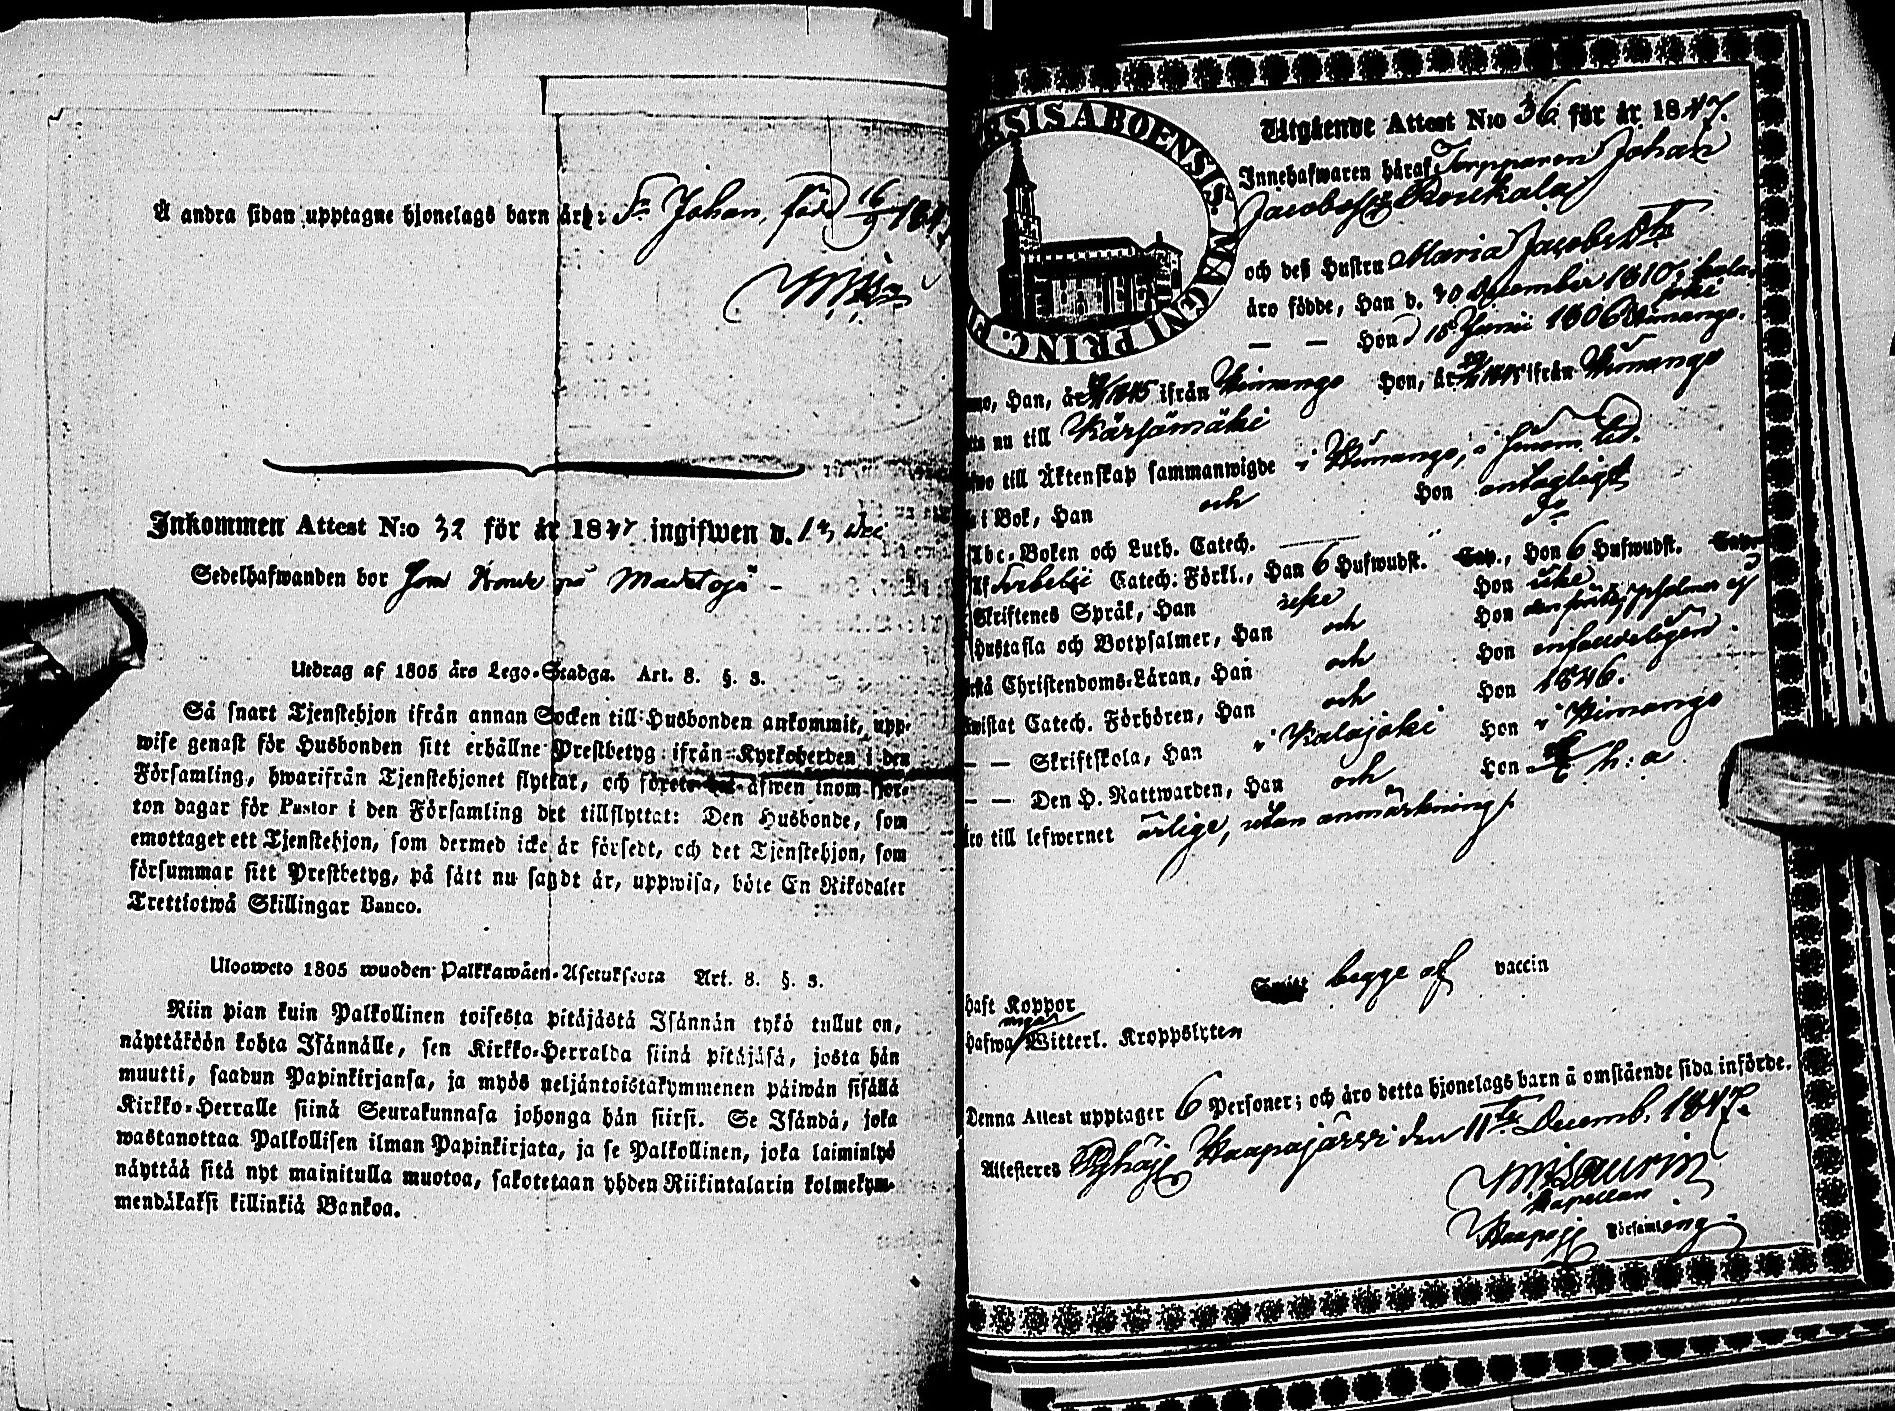 Å andra sidan upptagne hjonelags barn äro: S. Johan, född 16/9 184
Inkommen Attest N:o 32 för år 1847 ingifwen d. 13 Dec
Sedelhafwanden bor
Utdrag af 1805 års Lego-Stadga. Art. 8. §. 3.
Så snart Tjenstehjon ifrån annan Socken till Husbonden ankommit, upp-
wise genast för Husbonden sitt erhållne Prestbetyg ifrån Kyrkoherden i den
Församling, hwarifrån Tjenstehjonet flyttat, och förete det äfwen inom fjor-
ton dagar för Pastor i den Församling det tillflyttat: Den Husbonde, som
emottager ett Tjenstehjon, som dermed icke är försedt, och det Tjenstehjon, som
försummar sitt Prestbetyg, på sätt nu sagdt är, uppwisa, böte En Riksdaler
Trettiotwå Skillingar Banco.
Ulosweto 1805 wuoden Palkkawäen-Asetuksesta Art. 8. §. 3.
Niin pian kuin Palkollinen toisesta pitäjästä Isännän tykö tullut on,
näyttäköön kohta Isännälle, sen Kirkko-Herralda siinä pitäjäsä, josta hän
muutti, saadun Papinkirjansa, ja myös neljäntoistakymmenen päiwän sisällä
Kirkko-Herralle siinä Seurakunnasa johonga hän siirsi. Se Isändä, joka
wastanottaa Palkollisen ilman Papinkirjata, ja se Palkollinen, joka laiminlyö
näyttää sitä nyt mainitulla muotoa, sakotetaan yhden Riikintalarin kolmekym-
mendäkaksi killinkiä Bankoa.
ENSIS ABOENSIS. MAGNI PRINC. F
Utgående Attest N:o 36 för år 1847.
Innehafwaren häraf Torpparen Johan
Jacobss Roukala
och deß Hustru Maria Jacobs Dtr
äro födde, Han d. 20 December 1810 i Kala-
joki
— — Hon d 15 Junii 1806 Himango.
Han, är 1845 ifrån Himango Hon, är 1845 ifrån Himango
nu till Kärsämäki
till Äktenskap sammanwigde i Himango, i
i Bok, Han och Hon antagligt
Abc-Boken och Luth. Catech. Do
Af Catech. Förkl., Han 6 Hufwudst. Cap., Hon 6 Hufwudst. Cap.
Skriftenes Språk, Han icke Hon icke
Hustafla och Botpsalmer, Han och Hon
Christendoms-Läran, Han och Hon
wistat Catech. Förhören, Han och Hon 1846.
— — Skriftskola, Han i Kalajoki Hon i Himango
— — Den H. Nattwarden, Han och Hon h: a
äro till lefwernet ärlige, utan anmärkning
haft Koppor Smitt begge af vaccin
hafwa inga Witterl. Kroppslyten
Denna Attest upptager 6 Personer; och äro detta hjonelags barn å omstående sida införde.
Attesteres Pyhäj Haapajärvi den 11te Decemb. 1847.
Kapellan
Haapajj Församling